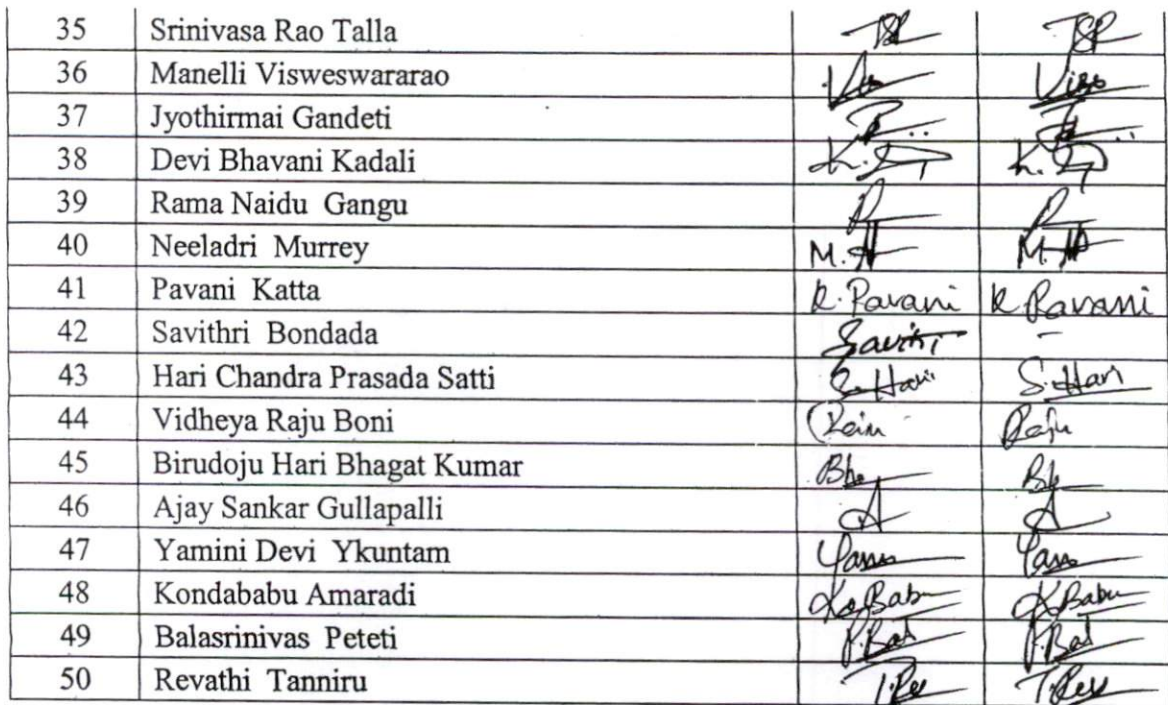 35 Srinivasa Rao Talla TSR TSR
36 Manelli Visweswararao
37 Jyothirmai Gandeti
38 Devi Bhavani Kadali K. K.
39 Rama Naidu Gangu
40 Neeladri Murrey M. M.
41 Pavani Katta K. Pavani K Pavani
42 Savithri Bondada Savitri -
43 Hari Chandra Prasada Satti S. Hari S. Hari
44 Vidheya Raju Boni Raju Raju
45 Birudoju Hari Bhagat Kumar
46 Ajay Sankar Gullapalli A A
47 Yamini Devi Ykuntam
48 Kondababu Amaradi
49 Balasrinivas Peteti
50 Revathi Tanniru